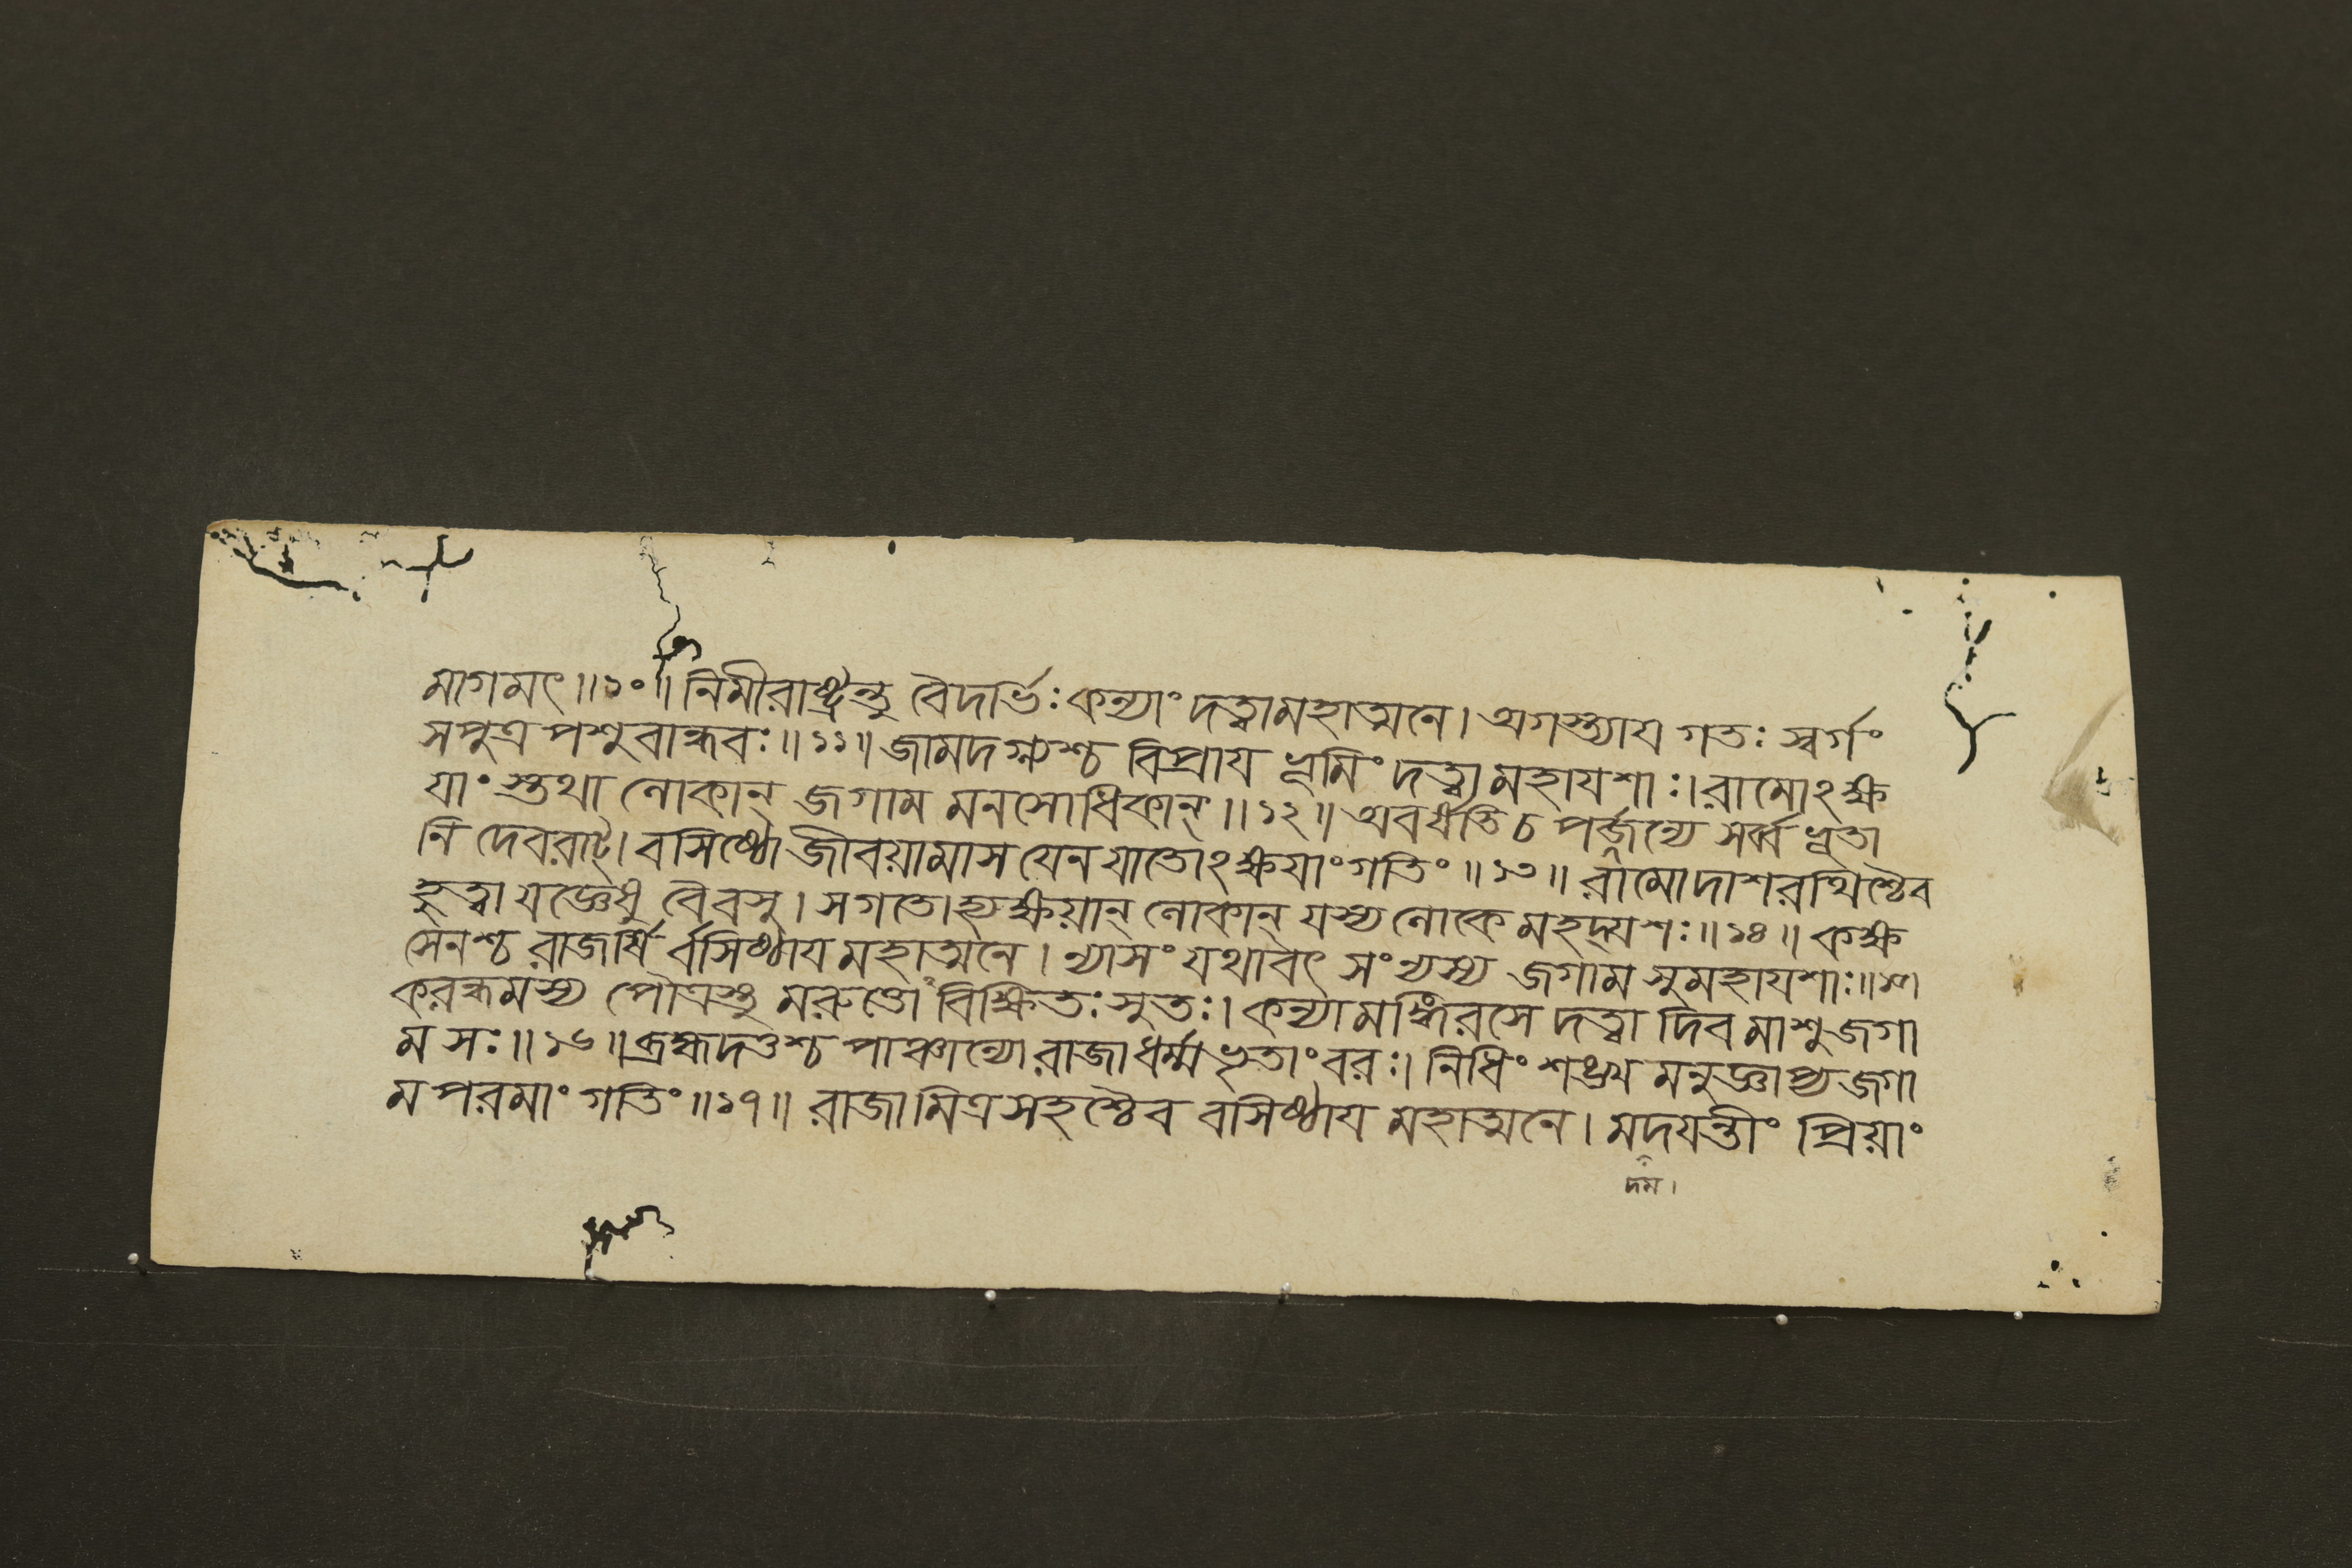 মাগমৎ॥১০॥নিমীরাষ্ট্রন্তু বৈদর্ভিঃ কন্যাং দত্বামহাত্মনে। অগস্ত্যায গতঃ স্বর্গং
সপুত্র পশুবান্ধবঃ॥১১॥ জামদগ্ন্যশ্চ বিপ্রায ভূমিং দত্ত্বা মহাযশাঃ। রামোঽক্ষ
যাংস্তথা লোকান্ জগাম মনসোধিকান্॥১২॥ অবর্ষতি চ পর্জ্জন্যে সর্ব্বভূতা
নি দেবরাট্। বসিষ্ঠো জীবয়ামাস যেন যাতোঽক্ষযাং গতিং॥১৩॥ রামোদাশরথিশ্চৈব
হুত্বা যজ্ঞেষু বৈবসু। সগতোহ্যক্ষয়ান্ লোকান্ যস্য লোকে মহদ্যশঃ॥১৪॥ কক্ষ
সেনশ্চ রাজর্ষি র্বসিষ্ঠায মহাত্মনে। ন্যাসং যথাবৎ সংন্যস্য জগাম সুমহাযশাঃ॥১৫॥
করন্ধমস্য পৌত্রস্তু মরুত্তোঽবিক্ষিতঃ সুতঃ। কন্যামঙ্গিরসে দত্বা দিবমাশু জগা
ম সঃ॥১৬॥ ব্রহ্মদত্তশ্চ পাঞ্চাল্যো রাজা ধর্ম্মভৃতাং বরঃ। নিধিং শঙ্খমনুজ্ঞাপ্য জগা
ম পরমাং গতিং॥১৭॥ রাজা মিত্রসহশ্চৈব বসিষ্ঠায মহাত্মনে। মদযন্তীং প্রিয়াং